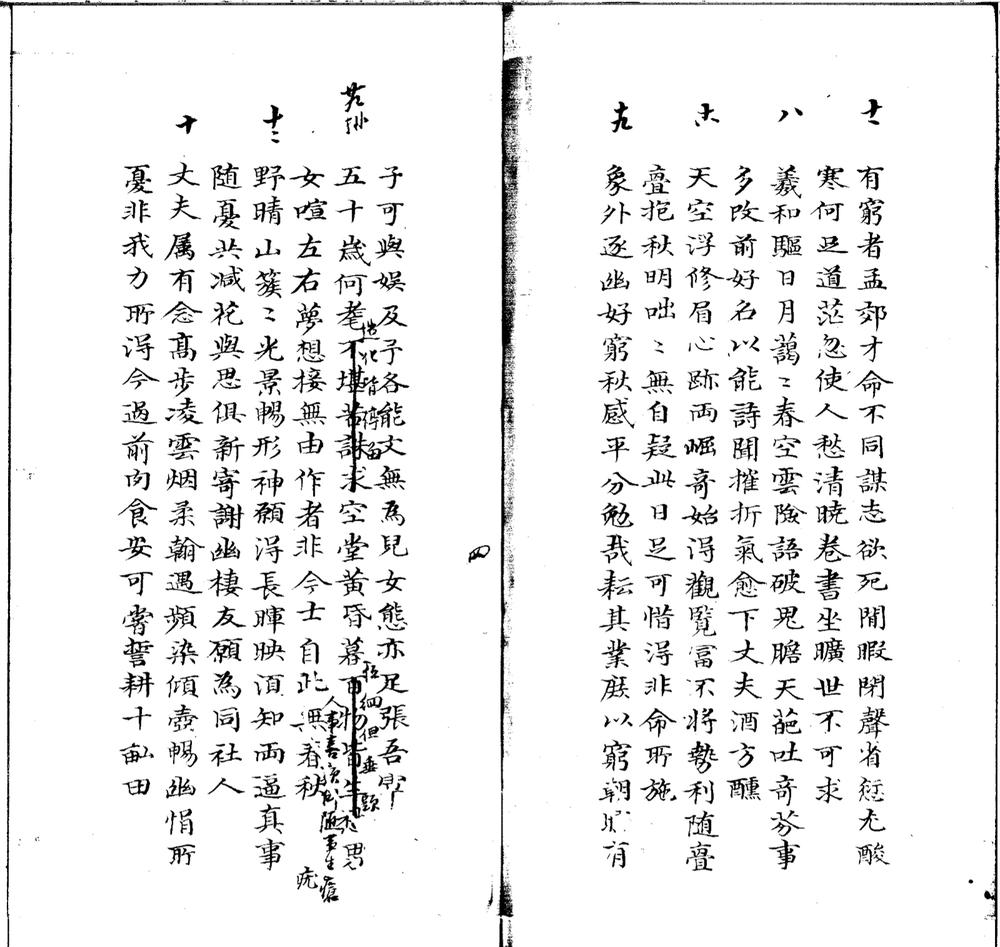 十一
有窮者孟郊才命不同謀志欲死閒暇閉聲省愆尤酸
寒何足道茫忽使人愁清曉卷書坐曠世不可求
八
羲和驅日月藹〻春空雲險語破鬼膽天葩吐奇芬事
多改前好名以能詩聞摧折氣愈下丈夫酒方醺
六
天空浮修眉心跡兩崛奇始得觀覽富不將勢利隨亹
亹抱秋明咄〻無自疑此日足可惜得非命所施
九
象外逐幽好窮秋感平分勉哉耘其業庶以窮朝
四
子可與娛及子各能文無為兒女態亦足張吾
五十歲何耄不堪苦誅求空堂黃昏暮百物皆生思
造化皆停留
女喧左右夢想接無由作者非今士自此無春秋
人事喜
隨事生瘡
疣
十二
野晴山簇〻光景暢形神願得長暉映須知兩逼真事
隨憂共減花與思俱新寄謝幽棲友願為同社人
十
丈夫属有念高步凌雲烟柔翰遇頻染傾壺暢幽悁所
憂非我力所得今過前肉食安可嘗誓耕十畝田